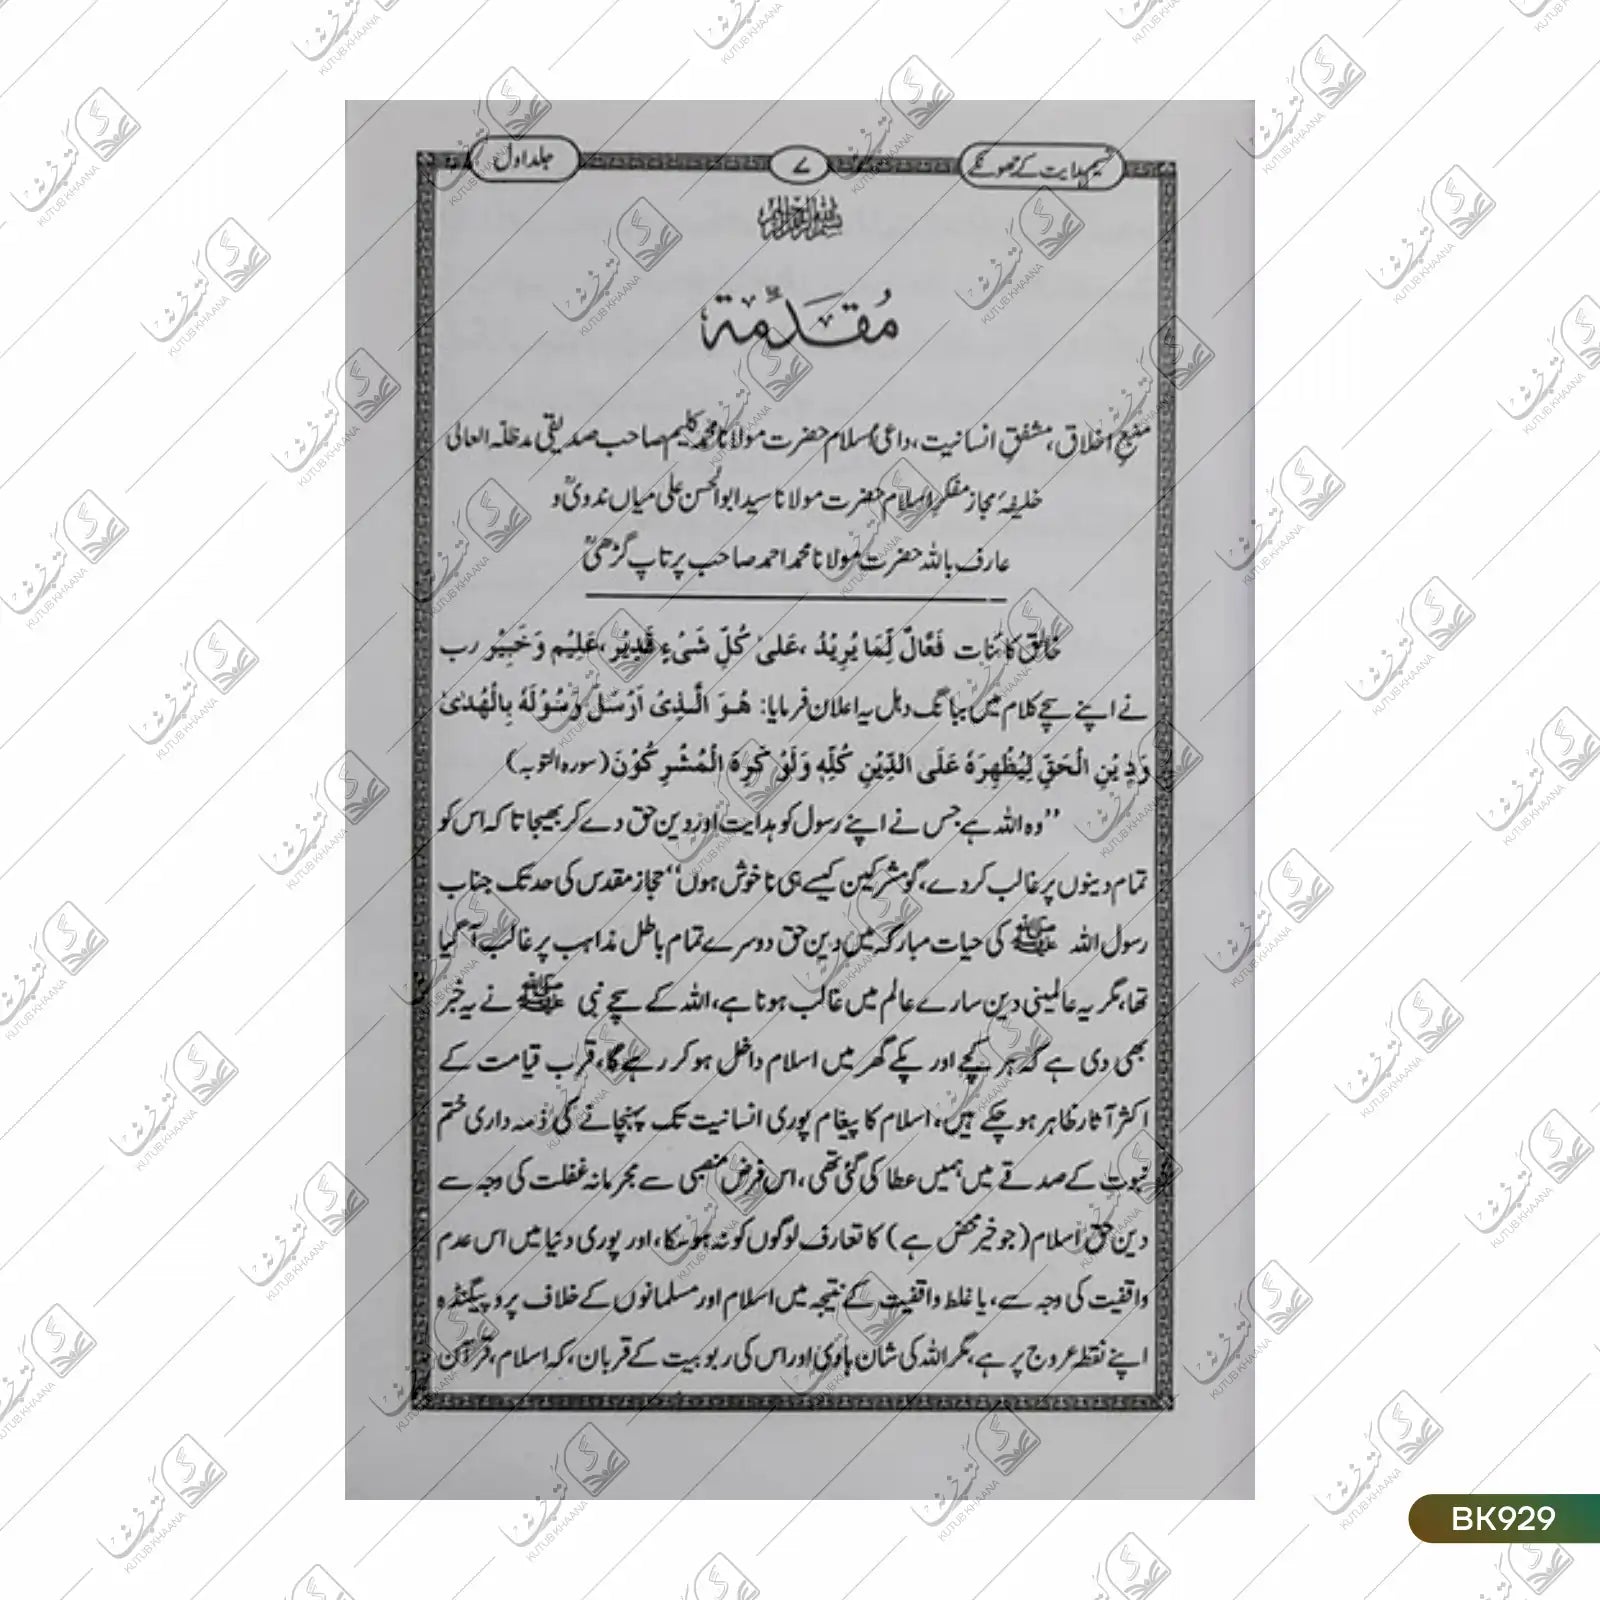 نسیم ہدایت کے جھونکے
۷
جلد اول
بسم اللہ الرحمن الرحیم
مُقدَّمۃ
منبعِ اخلاق، مشفقِ انسانیت، داعیٔ اسلام حضرت مولانا محمد کلیم صاحب صدیقی مدظلہ العالی
خلیفہ مجاز مفکر اسلام حضرت مولانا سید ابوالحسن علی میاں ندویؒ و
عارف باللہ حضرت مولانا محمد احمد صاحب پرتاپ گڑھیؒ
خالق کائنات فَعَّالٌ لِّمَا یُرِیْدُ، عَلیٰ کُلِّ شَیْءٍ قَدِیْر، عَلِیْم وَ خَبِیْر رب
نے اپنے سچے کلام میں ببانگ دہل یہ اعلان فرمایا: ھُوَ الَّذِیْ اَرْسَلَ رَسُوْلَہٗ بِالْھُدٰی
وَدِیْنِ الْحَقِّ لِیُظْھِرَہٗ عَلَی الدِّیْنِ کُلِّہٖ وَلَوْ کَرِہَ الْمُشْرِکُوْنَ (سورہ التوبہ)
’’وہ اللہ ہے جس نے اپنے رسول کو ہدایت اور دین حق دے کر بھیجا تا کہ اس کو
تمام دینوں پر غالب کر دے، گو مشرکین کیسے ہی ناخوش ہوں‘‘ حجاز مقدس کی حد تک جناب
رسول اللہ ﷺ کی حیات مبارکہ میں دین حق دوسرے تمام باطل مذاہب پر غالب آ گیا
تھا، مگر یہ عالمینی دین سارے عالم میں غالب ہونا ہے، اللہ کے سچے نبی ﷺ نے یہ خبر
بھی دی ہے کہ ہر کچے اور پکے گھر میں اسلام داخل ہو کر رہے گا، قرب قیامت کے
اکثر آثار ظاہر ہو چکے ہیں، اسلام کا پیغام پوری انسانیت تک پہنچانے کی ذمہ داری ختم
نبوت کے صدقے میں ہمیں عطا کی گئی تھی، اس فرض منصبی سے مجرمانہ غفلت کی وجہ سے
دین حق اسلام (جو خیر محض ہے) کا تعارف لوگوں کو نہ ہو سکا، اور پوری دنیا میں اس عدم
واقفیت کی وجہ سے، یا غلط واقفیت کے نتیجہ میں اسلام اور مسلمانوں کے خلاف پروپیگنڈہ
اپنے نقطہ عروج پر ہے، مگر اللہ کی شان ہادی اور اس کی ربوبیت کے قربان، کہ اسلام، قرآن
BK929
کتب خانہ
KUTUB KHAANA